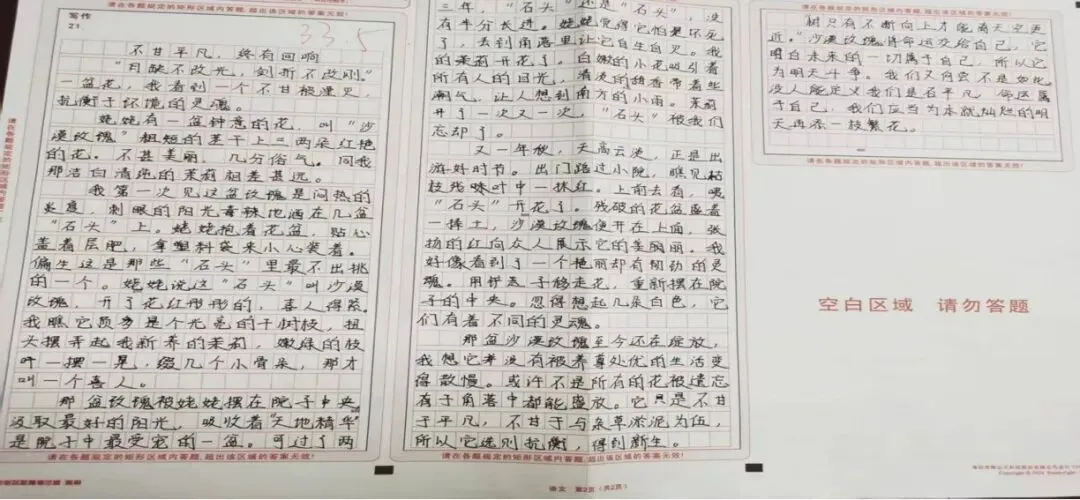 请在各题规定的矩形区域内答题,超出该区域的答案无效!
写作
21.
33.5
不甘平凡,终有回响
“月缺不改光,剑折不改刚。”
一盆花,我看到一个不甘被湮灭,
抗衡于环境的灵魂。
姥姥有一盆钟意的花,叫“沙
漠玫瑰”粗短的茎干上三两朵红艳
的花。不甚美丽,几分俗气。同我
那洁白清纯的茉莉相差甚远。
我第一次见这盆玫瑰是闷热的
炎夏,刺眼的阳光毒辣地洒在几盆
“石头”上。姥姥抱着花盆,贴心
盖着层肥,拿塑料袋来小心装着。
偏生这是那些“石头”里最不出挑
的一个。姥姥说这“石头”叫沙漠
玫瑰,开了花红彤彤的,喜人得紧。
我瞧它顶多是个光亮的干树枝,扭
头摆弄起我新养的茉莉,嫩绿的枝
叶一摆一晃,缀几个小骨朵,那才
叫一个喜人。
那盆玫瑰被姥姥摆在院子中央
汲取最好的阳光,吸收着“天地精华”
是院子中最受宠的一盆。可过了两
请在各题规定的矩形区域内答题,超出该区域的答案无效!
三年,“石头”还是“石头”,没
有半分长进。姥姥觉得它怕是坏死
了,丢到角落里让它自生自灭。我
的茉莉开花了。白嫩的小花吸引着
所有人的目光,清淡的甜香带着些
潮气,让人想到南方的小雨。茉莉
开了一次又一次,“石头”被我们
忘却了。
又一年秋,天高云淡,正是出
游好时节。出门路过小院,瞧见枯
枝残叶中一抹红。上前去看,嘿
“石头”开花了。残破的花盆盛着
一捧土,沙漠玫瑰便开在上面,张
扬的红向众人展示它的美丽。我
好像看到了一个艳丽却有韧劲的灵
魂。用铲子移走花,重新摆在院
子的中央。忽得想起几朵白色,它
们有着不同的灵魂。
那盆沙漠玫瑰至今还在绽放,
我想它并没有被养尊处优的生活变
得散慢。或许不是所有的花被遗忘
有于角落中都能盛放。它只是不甘
于平凡,不甘于与杂草淤泥为伍,
所以它选则抗衡,得到新生。
请在各题规定的矩形区域内答题,超出该区域的答案无效!
语文 第2页(共2页)
请在各题规定的矩形区域内答题,超出该区域的答案无效!
树只有不断向上才能离天空更
近。”沙漠玫瑰将命运交给自己,它
明白未来的一切属于自己,所以它
为明天斗争。我们又何尝不是如此
没人能定义我们是否平凡,命运属
于自己,我们应当为本就灿烂的明
天再添一枝繁花。
请在各题规定的矩形区域内答题,超出该区域的答案无效!
空白区域 请勿答题